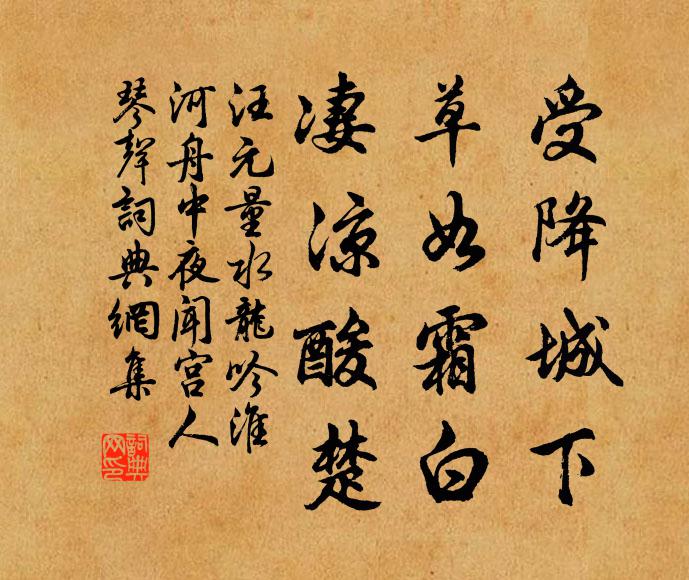 受降城下
草如霜白
淒涼酸楚
汪元量水龍吟淮
河舟中夜聞宮人
琴聲詞典網集
詞典
网印